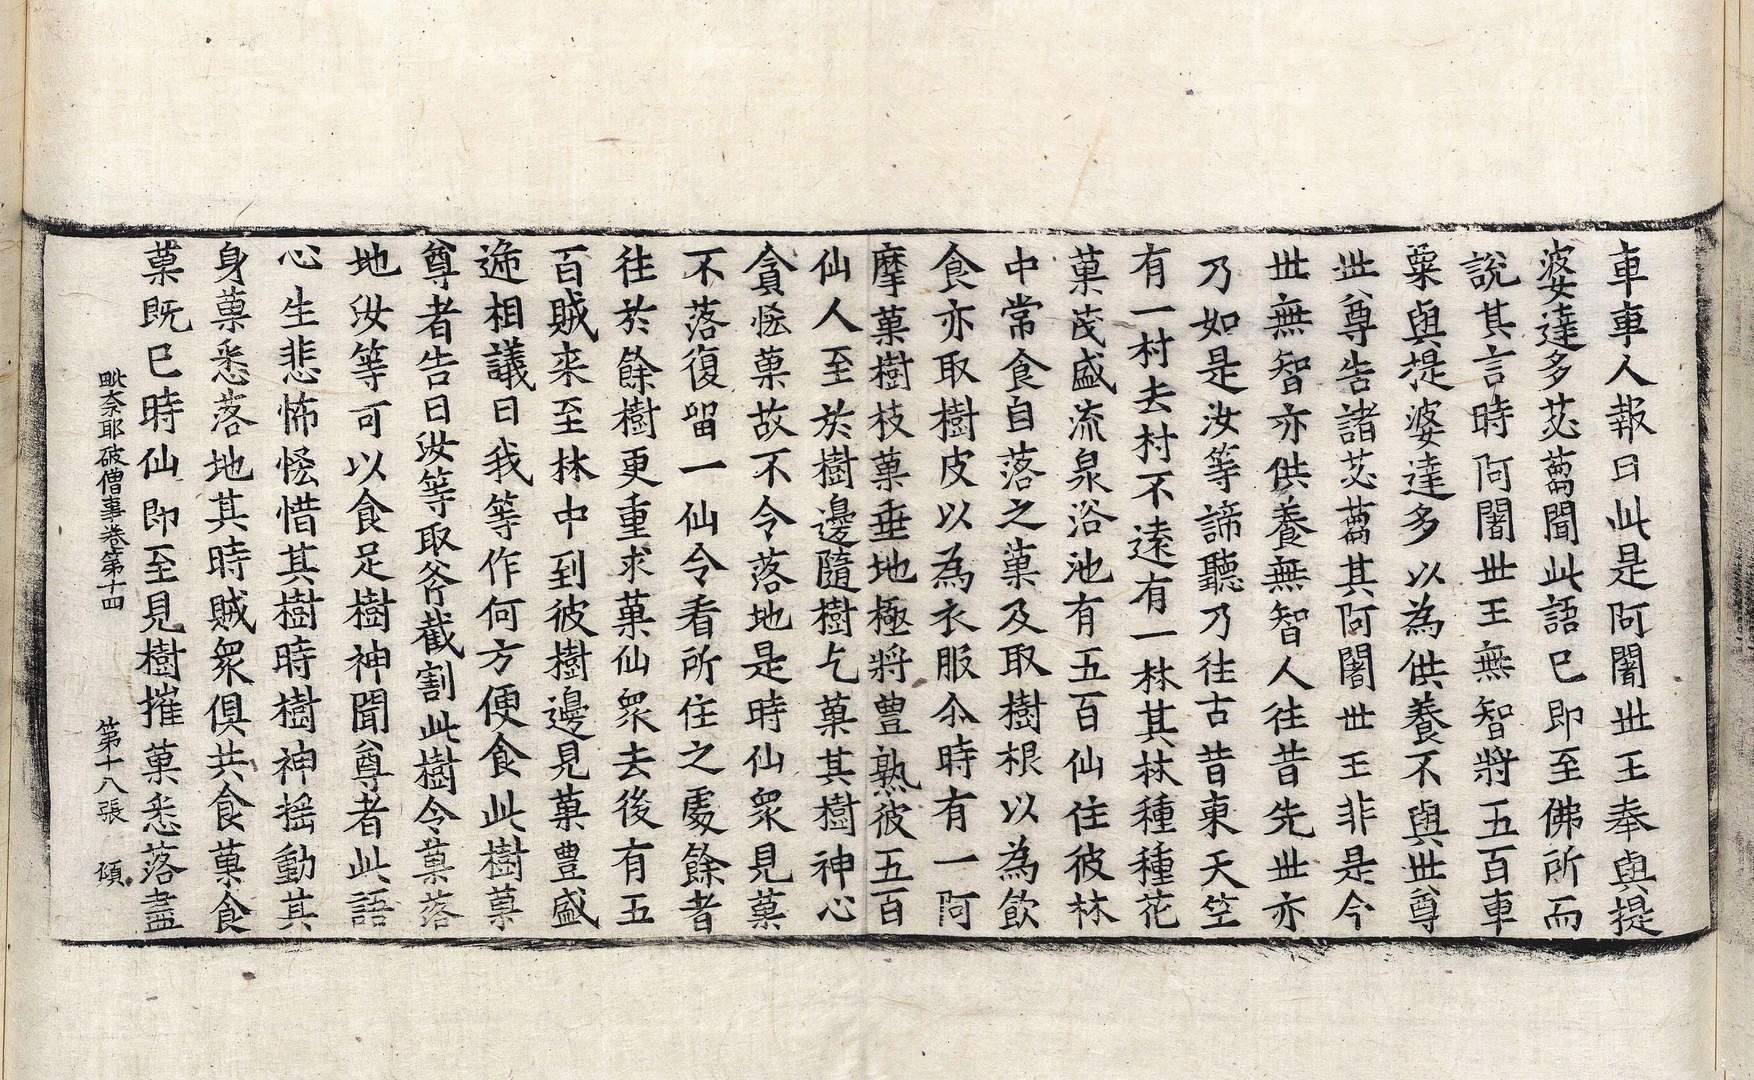 車車人報曰此是阿闍世王奉與提
婆達多苾蒭聞此語已即至佛所而
說其言時阿闍世王無智將五百車
粟與提婆達多以為供養不與世尊
世尊告諸苾蒭其阿闍世王非是今
世無智亦供養無智人往昔先世亦
乃如是汝等諦聽乃往古昔東天笁
有一村去村不遠有一林其林種種花
菓茂盛流泉浴池有五百仙住彼林
中常食自落之菓及取樹根以為飲
食亦取樹皮以為衣服尒時有一阿
摩菓樹枝菓垂地極將豊熟彼五百
仙人至於樹邊隨樹乞菓其樹神心
貪恡菓故不令落地是時仙衆見菓
不落復留一仙令看所住之處餘者
往於餘樹更重求菓仙衆去後有五
百賊来至林中到彼樹邊見菓豊盛
遞相議曰我等作何方便食此樹菓
尊者告曰汝等取斧截割此樹令菓落
地汝等可以食足樹神聞尊者此語
心生悲怖恡惜其樹時樹神摇動其
身菓悉落地其時賊衆俱共食菓食
菓既已時仙即至見樹摧菓悉落盡
毗奈耶破僧事卷第十四 第十八張 傾